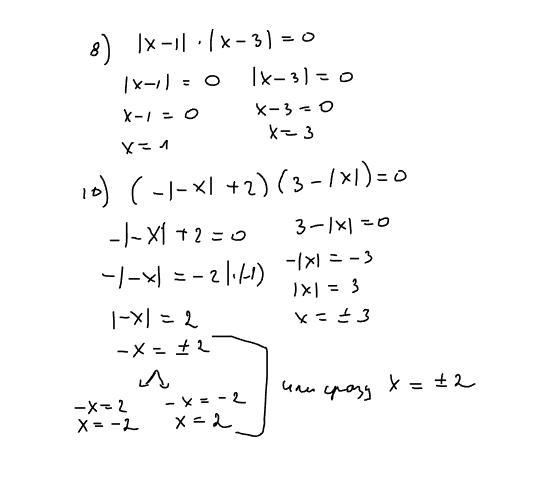 8) |x-1| · |x-3| = 0
|x-1| = 0 |x-3| = 0
x-1 = 0 x-3 = 0
x = 1 x = 3
10) (-|-x| +2) (3 - |x|) = 0
-|-x| + 2 = 0 3 - |x| = 0
-|-x| = -2 |·(-1) -|x| = -3
|x| = 3
|-x| = 2 x = ± 3
-x = ± 2
-x = 2 -x = -2 или сразу x = ± 2
x = -2 x = 2